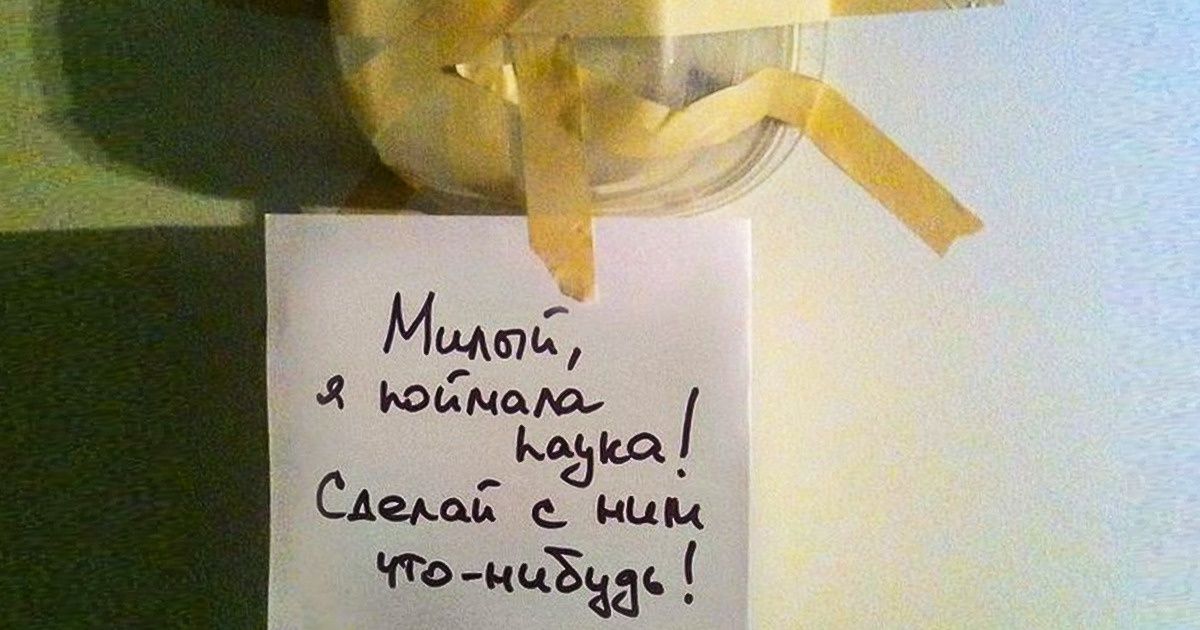 Милый,
я поймала
паука!
Сделай с ним
что-нибудь!